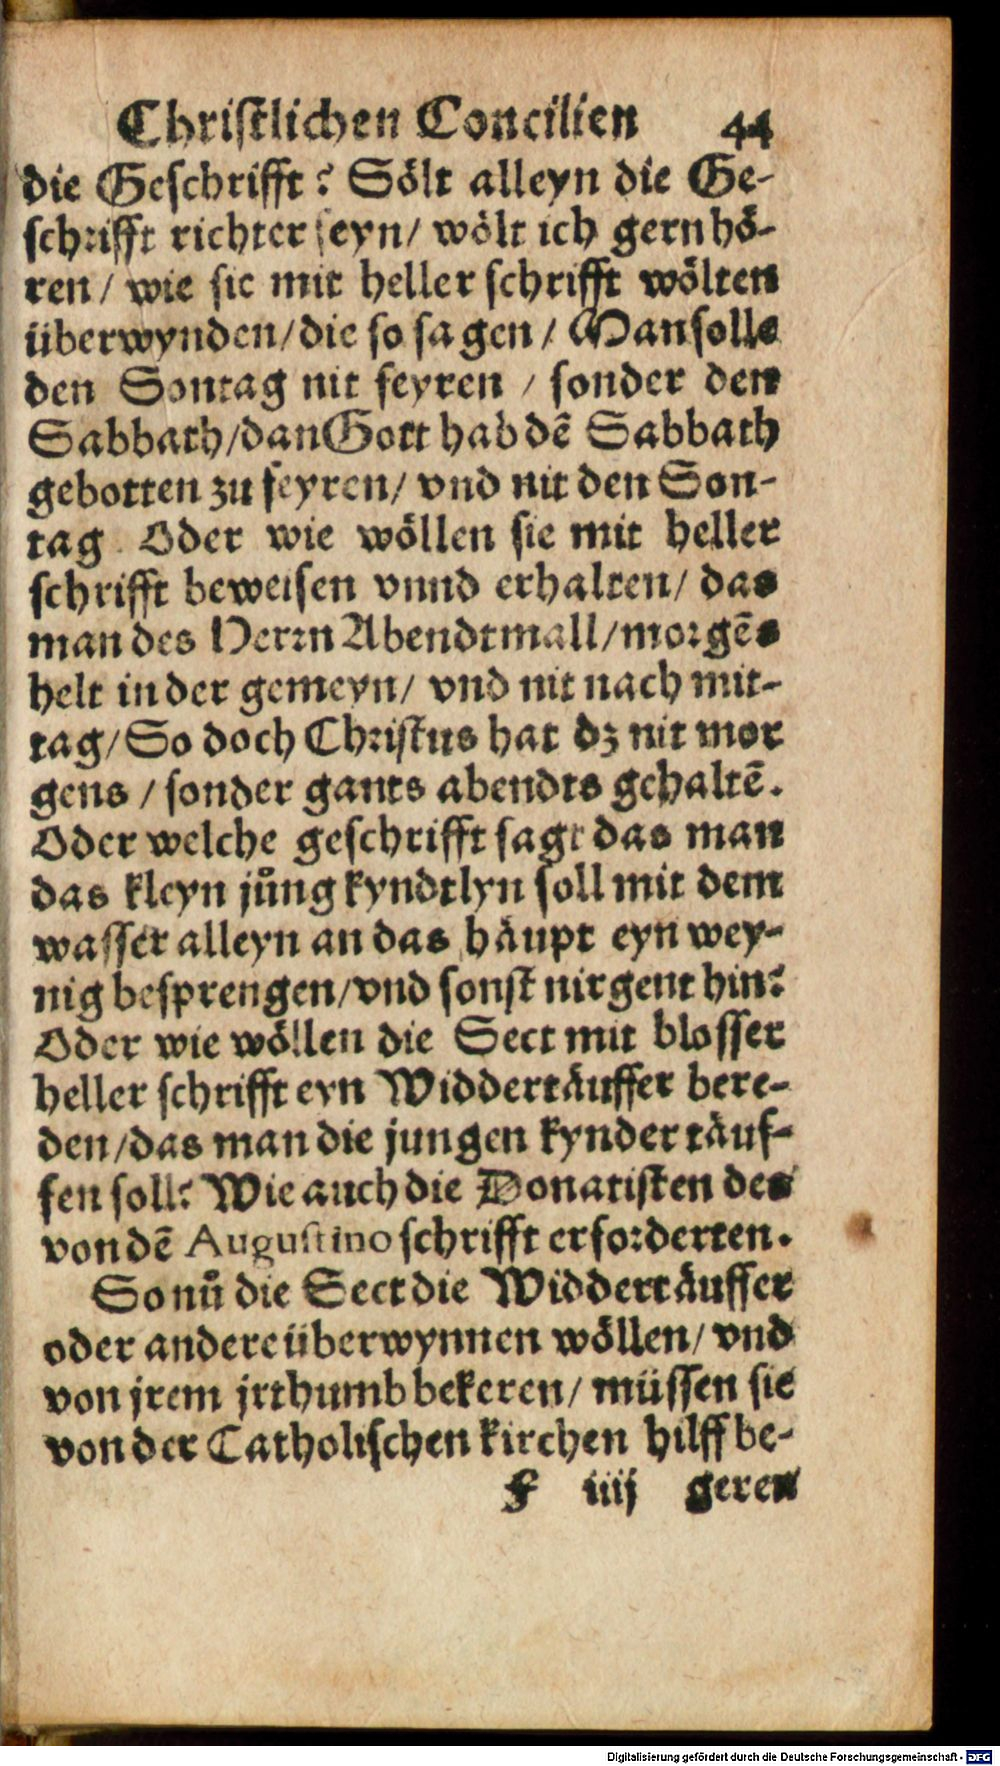 Christlichen Concilien 44
die Geschrifft? Sölt alleyn die Ge-
schrifft richter seyn/ wölt ich gern hö-
ren/ wie sie mit heller schrifft wölten
überwynden/die so sagen/ Man solle
den Sontag nit feyren / sonder den
Sabbath/dan Gott hab dē Sabbath
gebotten zu feyren/ vnd nit den Son-
tag. Oder wie wöllen sie mit heller
schrifft beweisen vnnd erhalten/ das
man des Herrn Abendtmall/morgēs
helt in der gemeyn/ vnd nit nach mit-
tag/So doch Christus hat dz nit mor
gens / sonder gants abendts gehaltē.
Oder welche geschrifft sagt das man
das kleyn jůng kyndtlyn soll mit dem
wasser alleyn an das häupt eyn wey-
nig besprengen/vnd sonst nirgent hin?
Oder wie wöllen die Sect mit blosser
heller schrifft eyn Widdertäuffer bere-
den/das man die jungen kynder täuf-
fen soll? Wie auch die Donatisten des
von dē Augustino schrifft erforderten.
So nů die Sect die Widdertäuffer
oder andere überwynnen wöllen/ vnd
von jrem jrthumb bekeren/ müssen sie
von der Catholischen kirchen hilff be-
f iiij geren
Digitalisierung gefördert durch die Deutsche Forschungsgemeinschaft - DFG